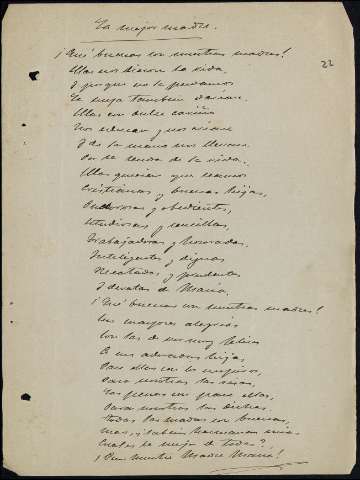 La mejor madre.
22
¡Qué buenas son nuestras madres!
Ellas nos dieron la vida,
Y porque no la perdamos
La suya también darían.
Ellas con dulce cariño
Nos educan y nos
Y de la mano nos llevan
Por la senda de la vida.
Ellas quieren que seamos
Cristianas y buenas hijas,
y obedientes,
Estudiosas y sencillas,
Trabajadoras y honradas,
Inteligentes y dignas
Recatadas y prudentes
Y devotas de María.
¡Qué buenas son nuestras madres!
Las mayores alegrías
Son las de vernos muy felices
A sus adoradas hijas,
Para ellas son las espinas,
Para nosotras las rosas,
Las penas son para ellas,
Para nosotras las dichas,
Todas las madres son buenas,
Mas, ¿sabéis hermanas mías
Cuál es la mejor de todas?
¡Pues Nuestra Madre María!